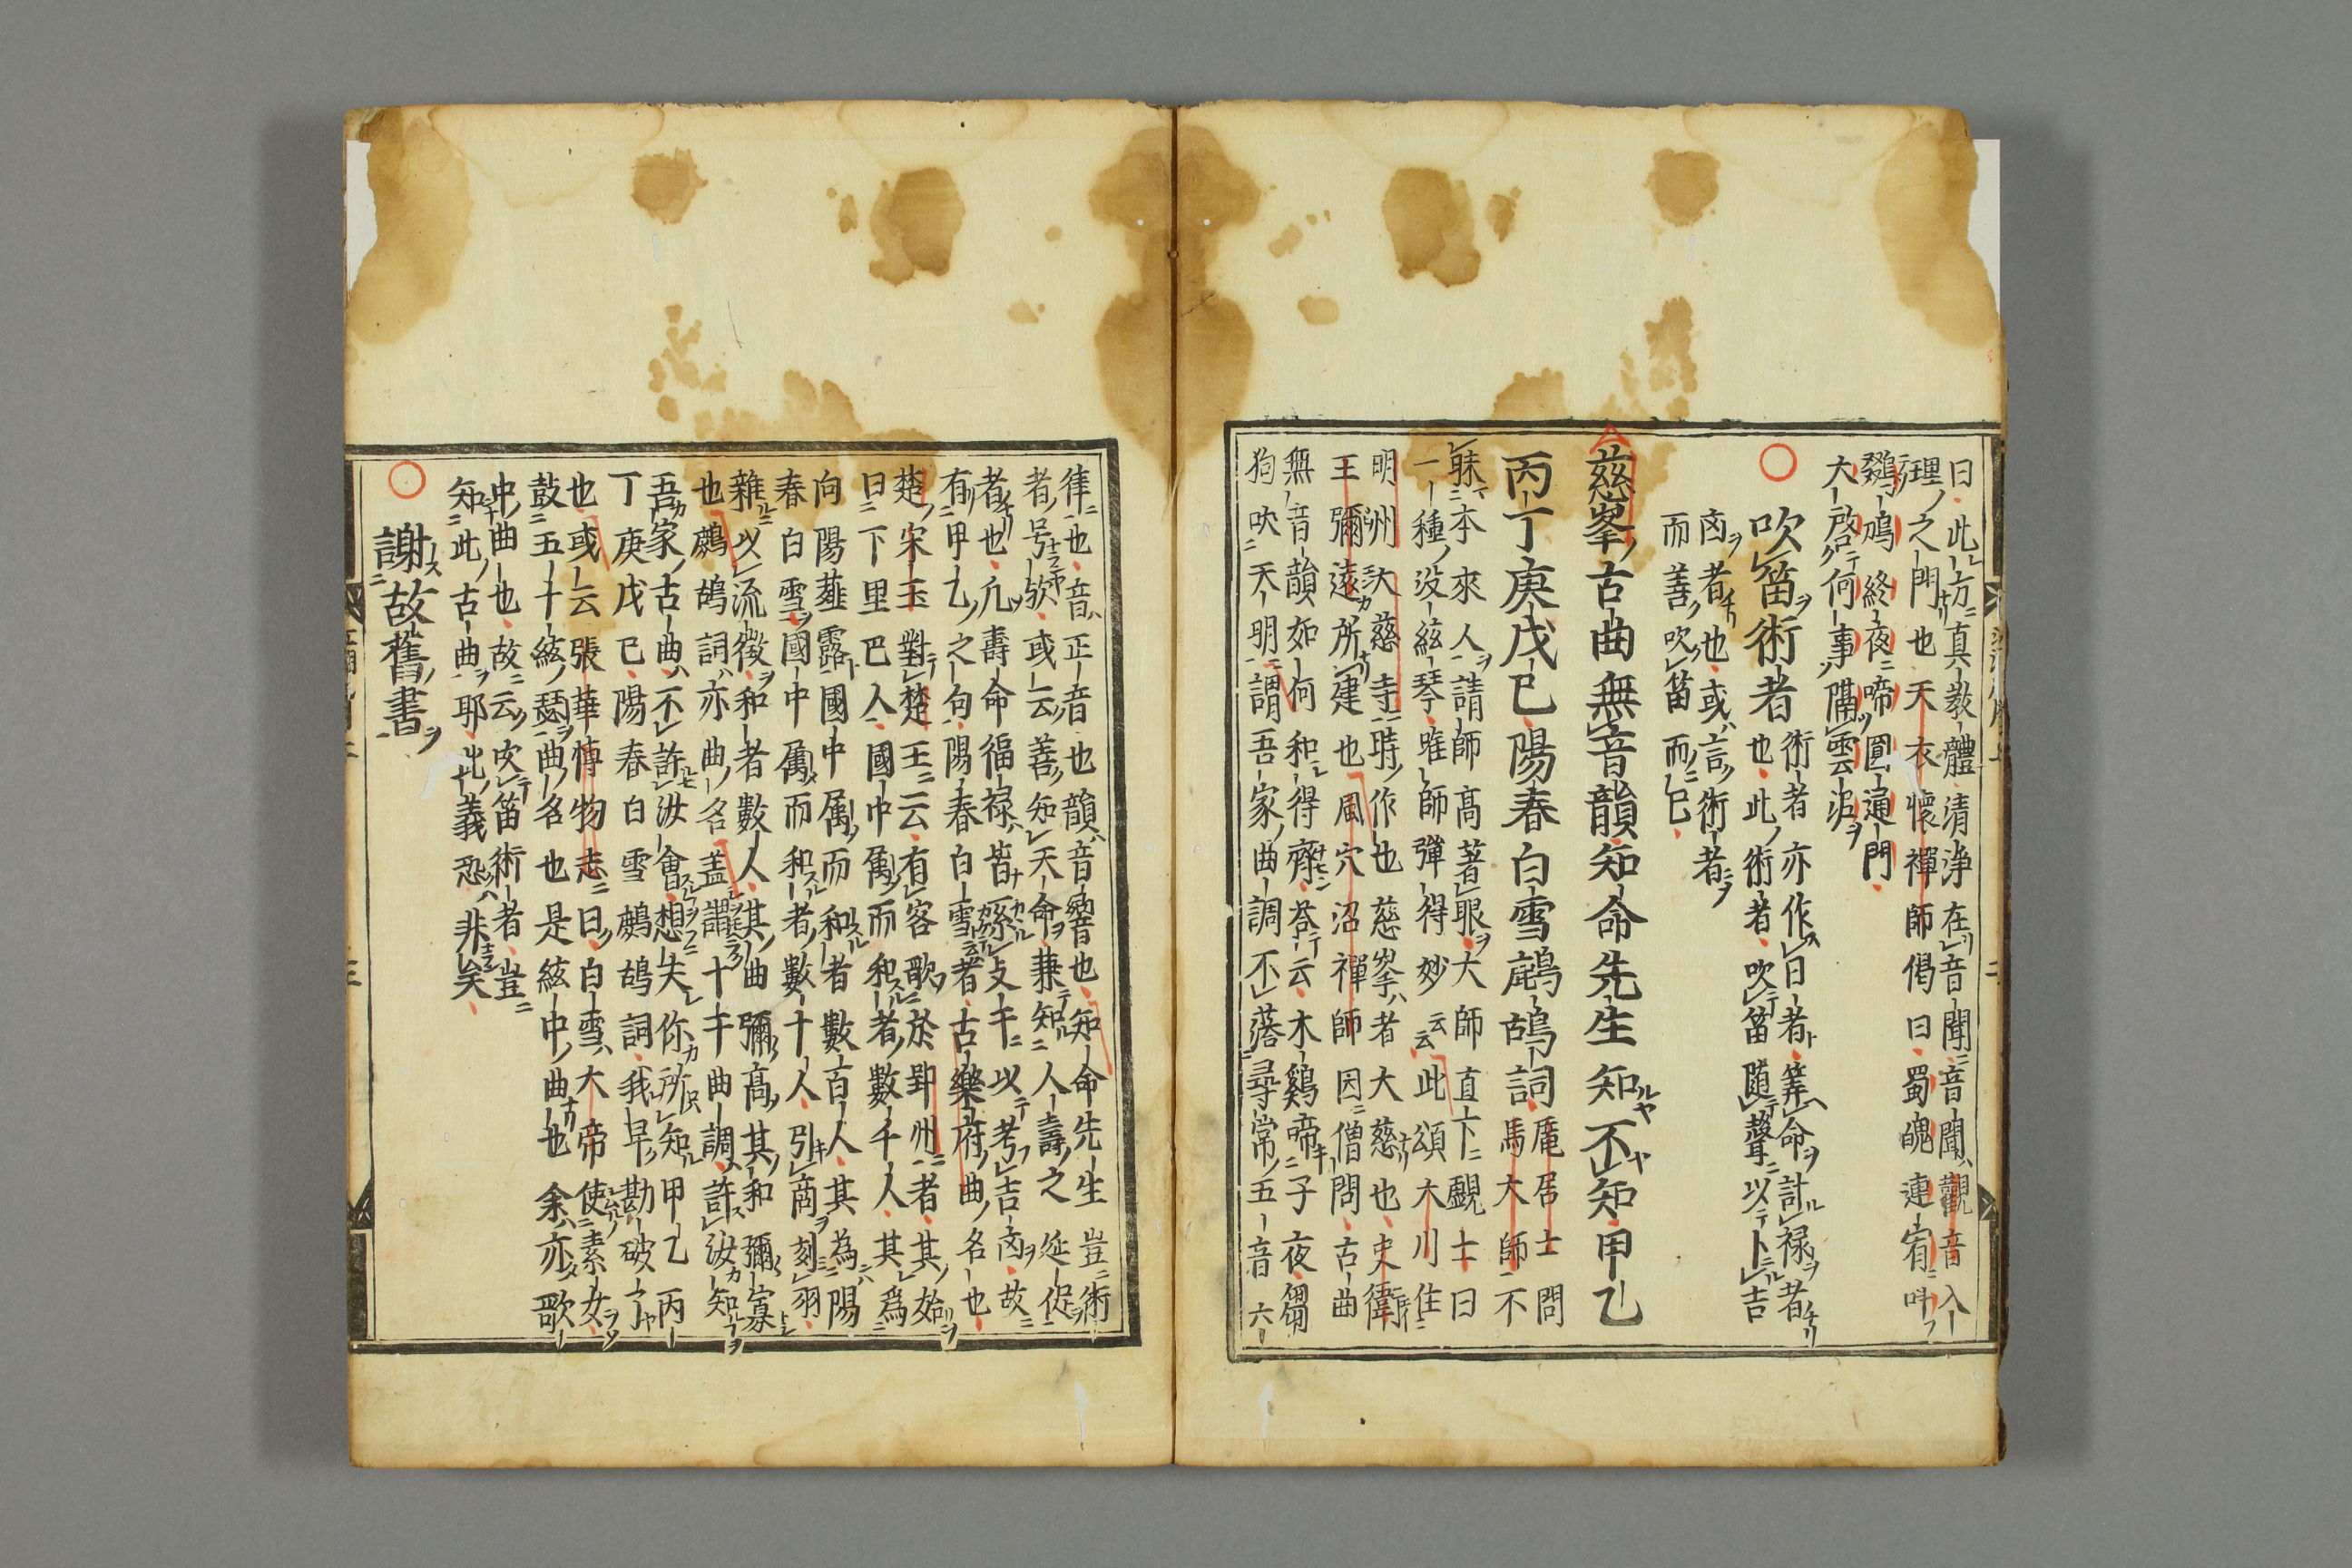 曰此方真教體清浄在音聞音聞觀音入
理之門也天衣懷禪師偈曰蜀魄連宵呌
鵽鳭終夜啼圓通門
大啓何事隔雲泥
吹笛術者
術者亦作日者筭命計禄者
也此術者吹笛随聲以卜吉
㐫者也或言術者
而善吹笛而已
慈峯古曲無音韻知命先生知不知甲乙
丙丁庚戊已陽春白雪鷓鴣詞
龐居士問
馬大師不
昧本來人請師髙著眼大師直下覷士曰
一種没絃琴唯師彈得妙云云此頌大川住
明州大慈寺時作也慈峯者大慈也史衛
王彌遠所建也風穴沼禪師因僧問古曲
無音韻如何和得齊答云木鷄啼子夜蒭
狗吠天明謂吾家曲調不落尋常五音六
律也音正音也韻音響也知命先生豈術
者号歟或云善知天命兼知人壽之延促
者也凡壽命福禄皆係支干以考吉㐫故
有甲乙之句陽春白雪者古樂府曲名也
楚宋玉對楚王云有客歌於郢州者其始
曰下里巴人國中属而和者數千人其爲
向陽薤露國中属而和者數百人其為陽
春白雪國中属而和者數十人引商刻羽
雜以流徵和者數人其曲彌髙其和彌寡
也鷓鴣詞亦曲名盖謂十干曲調許汝知
吾家古曲不許汝會想夫你所知甲乙丙
丁庚戊已陽春白雪鷓鴣詞我早勘破了
也或云張華博物志曰白雪大帝使素女
鼓五十絃瑟曲名也是絃中曲也余亦歌
中曲也故云吹笛術者豈
知此古曲耶此義恐非矣
謝故舊書